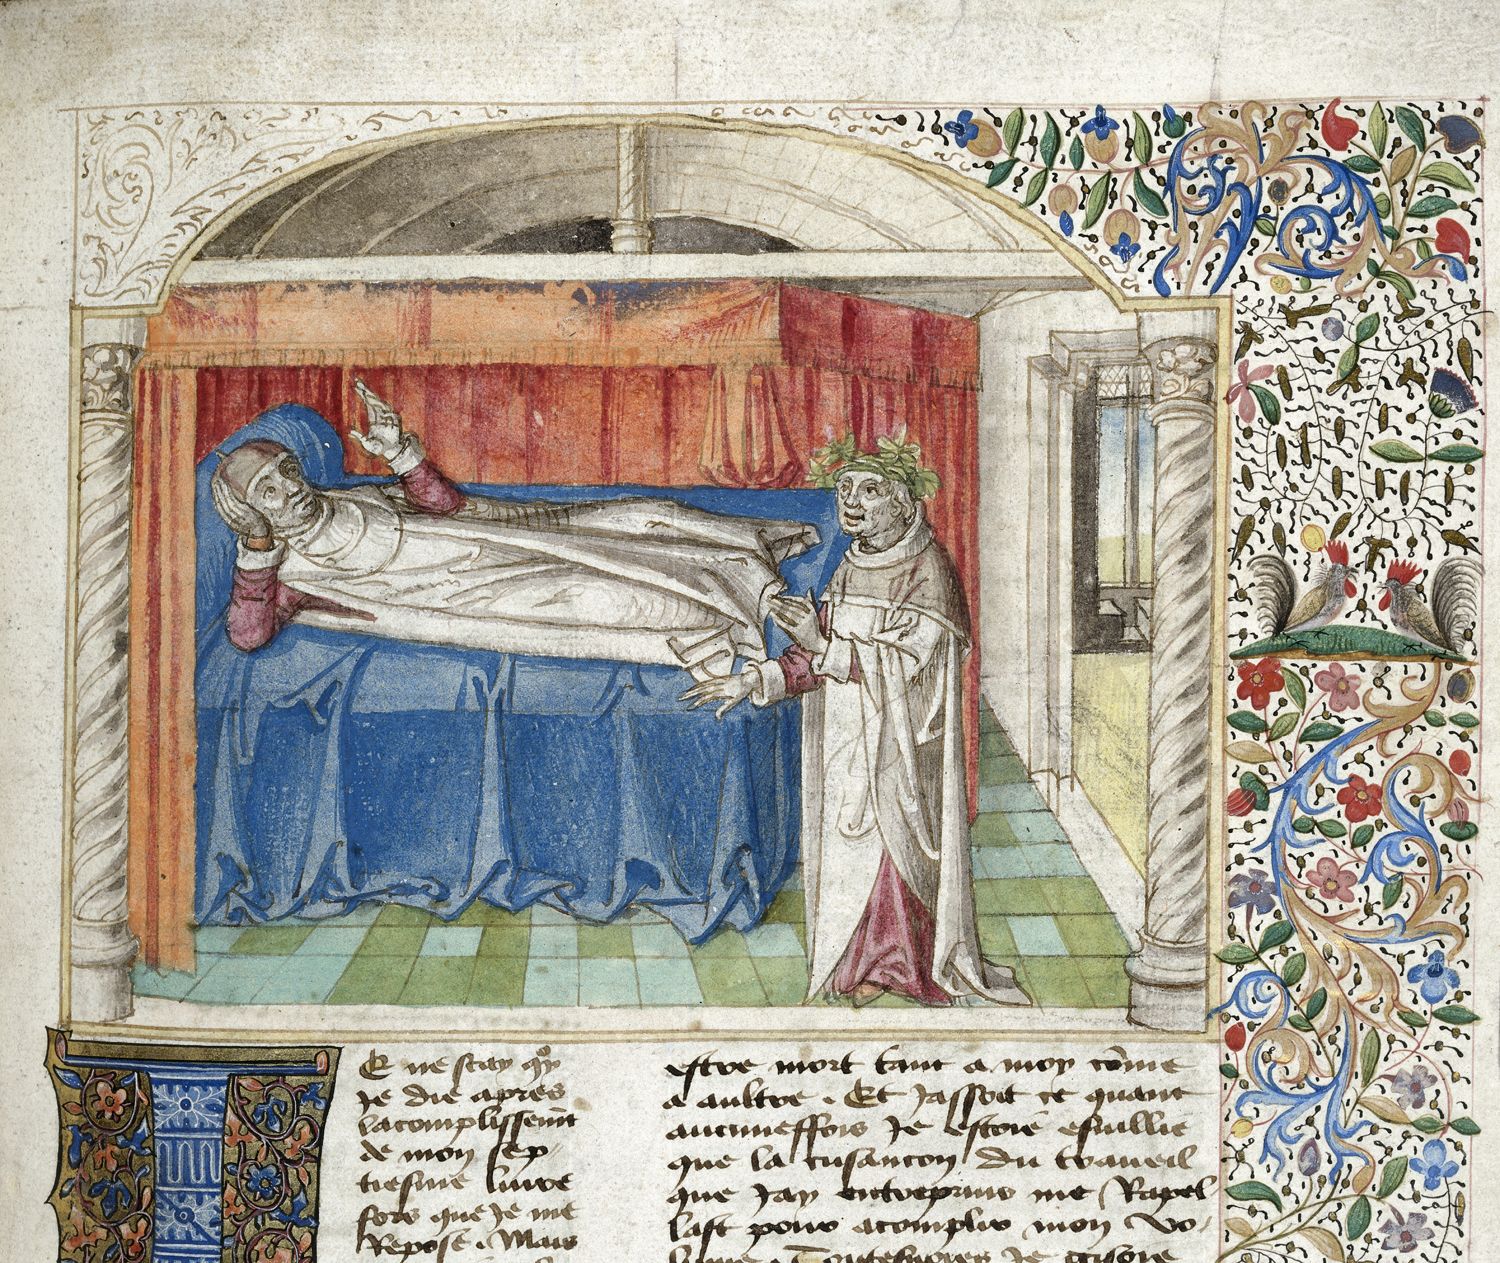 IE ne scay qͦy
Je die apres
lacomplissem̃t
de mon sep-
tiesme liure
fors que Je me
Repose . Mais
estre mort tant a moy cõme
a aultre . Et Jassoit ce quant
aucuneffois Je estoie esuillie
que la cusancon du traueil
que Jay entreprins me Rapel-
last pour acomplir mon vo-
lume . Toutesuoies Je